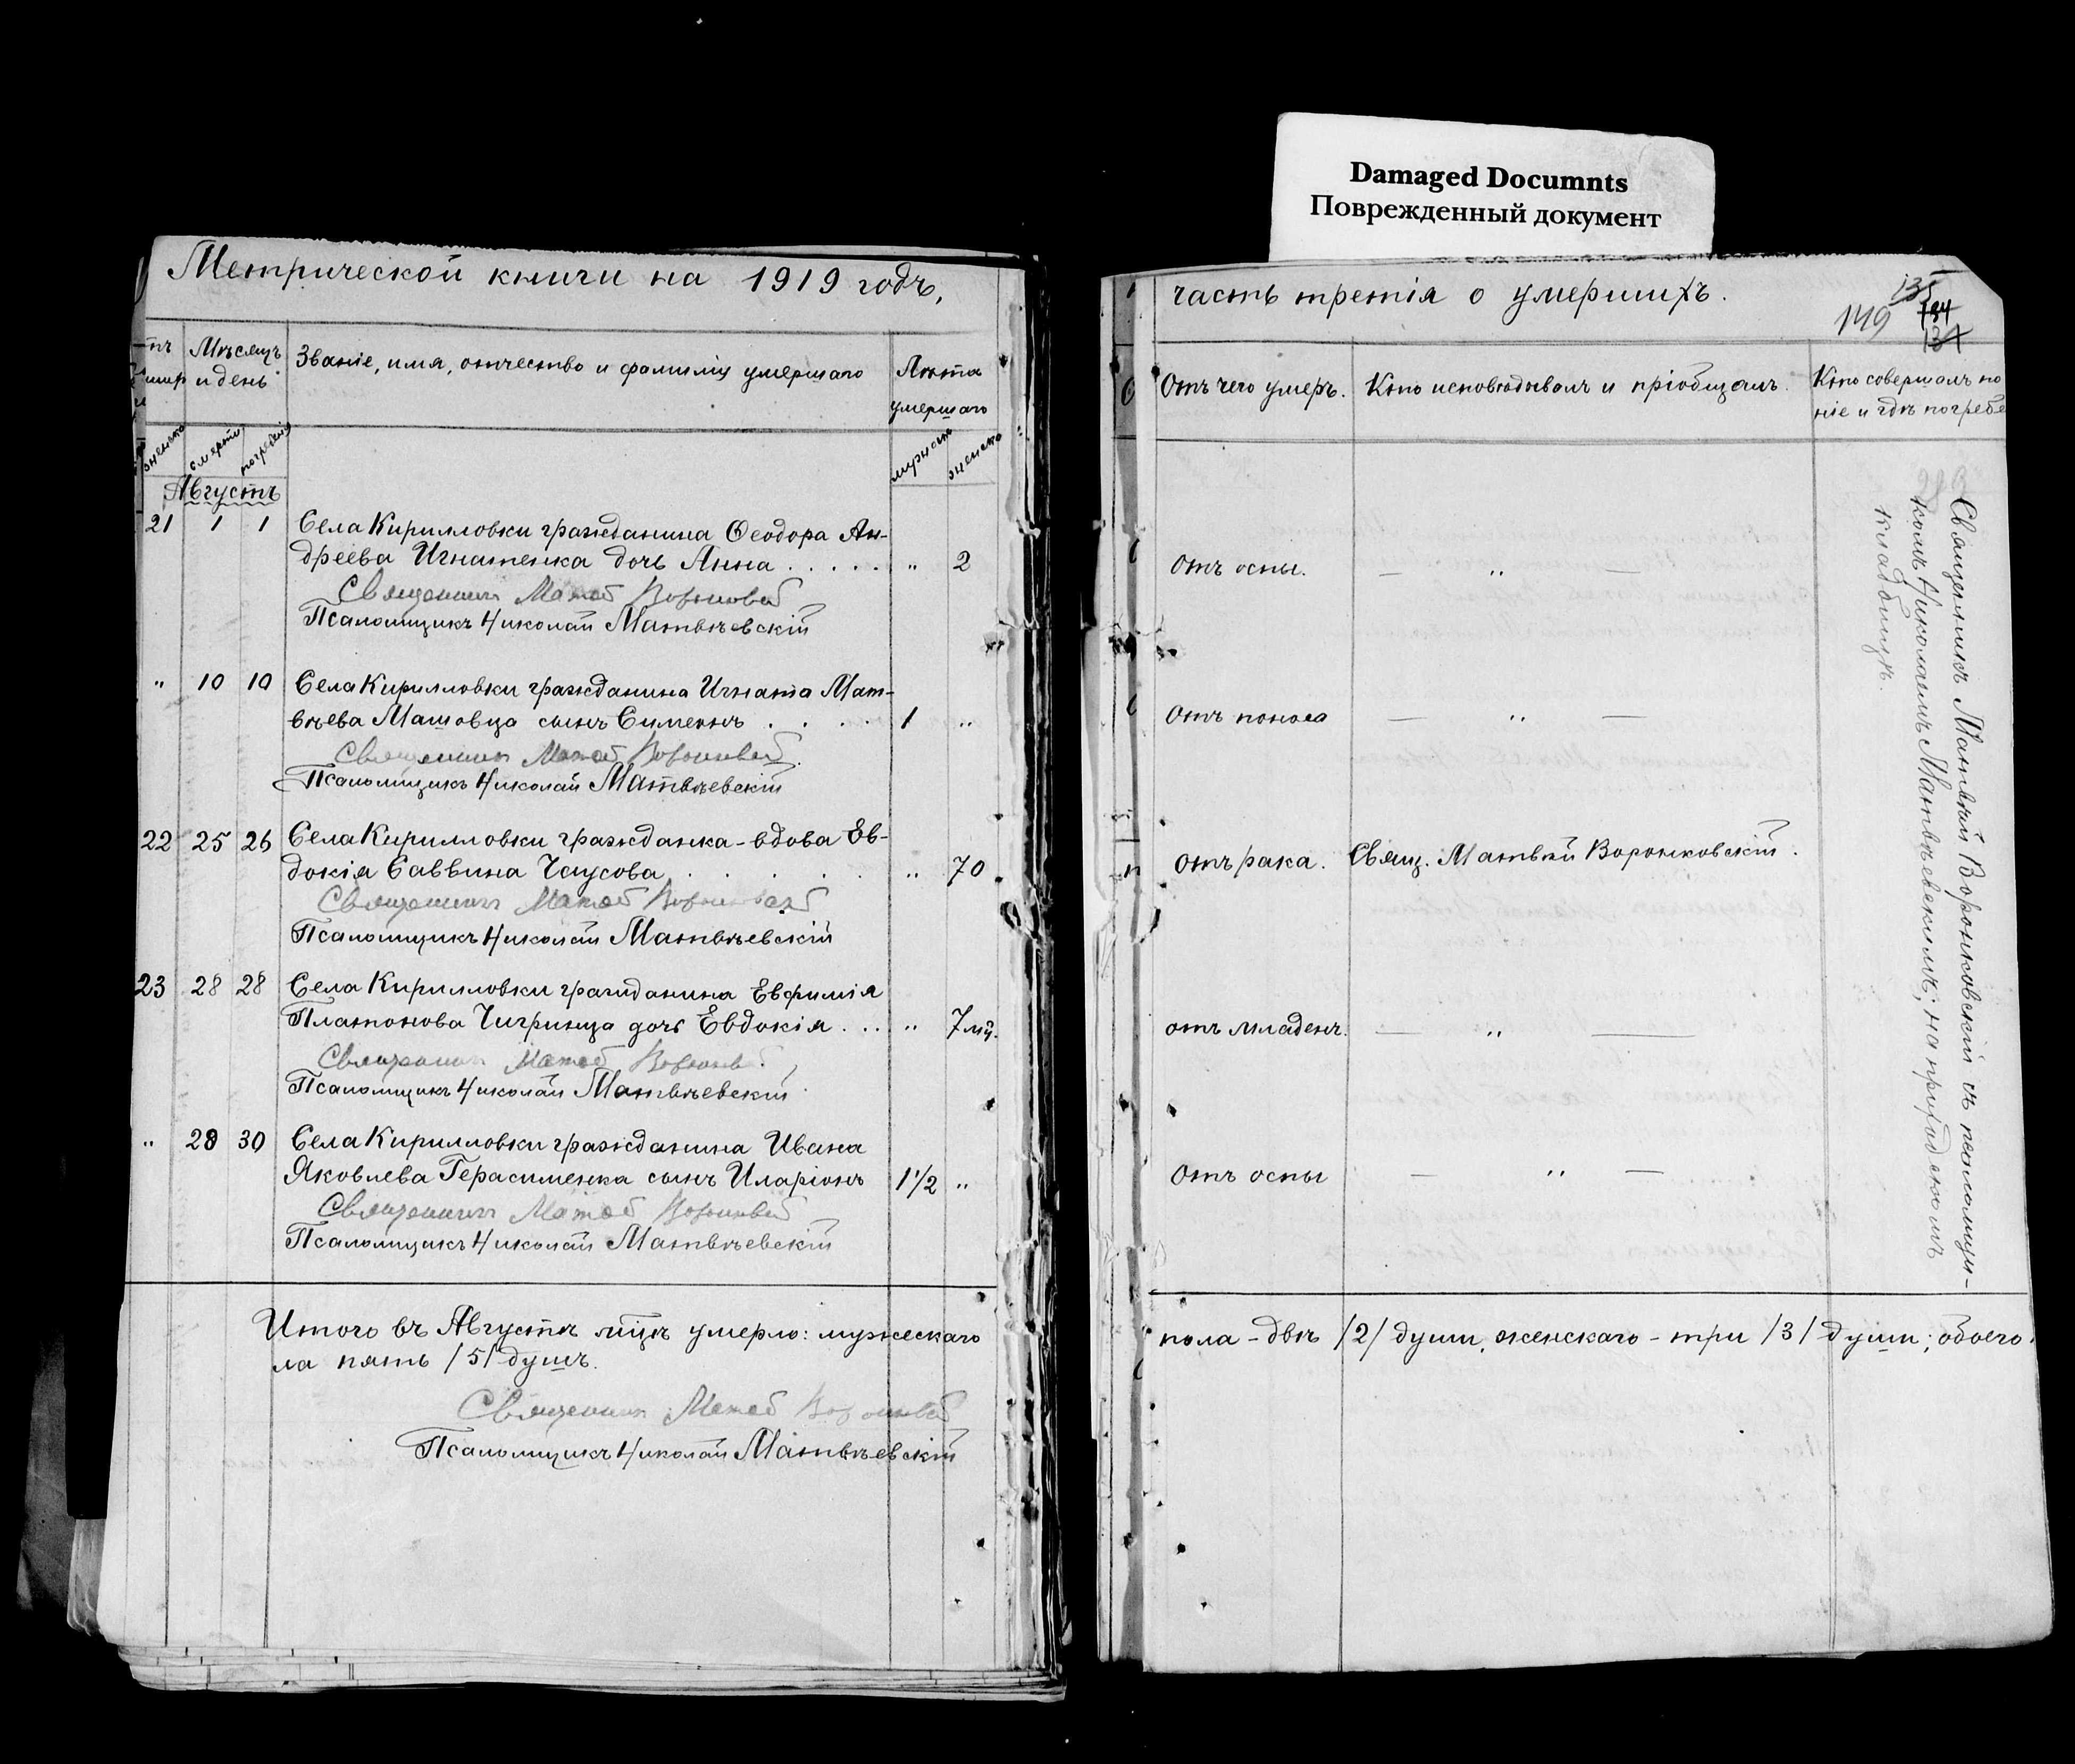 Damaged Documnts
Поврежденный документ
Метрической книги на 1919 годъ,
Мѣсяцъ
и день
Званіе, имя, отчество и фамилія умершаго
Лѣта
умершаго
женска
смерти
погребенія
мужска
женска
Августъ
21 1 1 Села Кирилловки гражданина Ѳеодора Ан-
дреева Игнатенка дочь Анна . . . . . „ 2
Священникъ Матвей
Псаломщикъ Николай Матвѣевскій
„ 10 10 Села Кирилловки гражданина Игната Мат-
вѣева Машовца сынъ Симеонъ . . . . 1 „
Священникъ Матвей
Псаломщикъ Николай Матвѣевскій
22 25 26 Села Кирилловки гражданка-вдова Ев-
докія Саввина Чаусова . . . . . „ 70
Священникъ Матвей
Псаломщикъ Николай Матвѣевскій
23 28 28 Села Кирилловки гражданина Евфимія
Платонова Чигринца дочь Евдокія . . . „ 7 мц.
Священникъ Матвей
Псаломщикъ Николай Матвѣевскій
„ 28 30 Села Кирилловки гражданина Ивана
Яковлева Герасименка сынъ Иларіонъ 1½ „
Священникъ Матвей
Псаломщикъ Николай Матвѣевскій
Итого въ Августѣ мцѣ умерло: мужескаго
ла пять /5/ душъ.
Священникъ Матвей
Псаломщикъ Николай Матвѣевскій
часть третія о умершихъ.
135
134
149
Отъ чего умеръ.
Кто исповѣдывалъ и пріобщалъ.
Кто совершалъ по
ніе и гдѣ погребе
Отъ оспы. — „ —
Отъ поноса — „ —
Отъ рака. Свящ. Матвѣй Воронковскій.
отъ младенч. — „ —
Отъ оспы — „ —
Священникъ Матвѣй Воронковскій съ псаломщи-
комъ Николаемъ Матвѣевскимъ; на приходскомъ
кладбищѣ.
пола - двѣ /2/ души, женскаго - три /3/ души; обоего